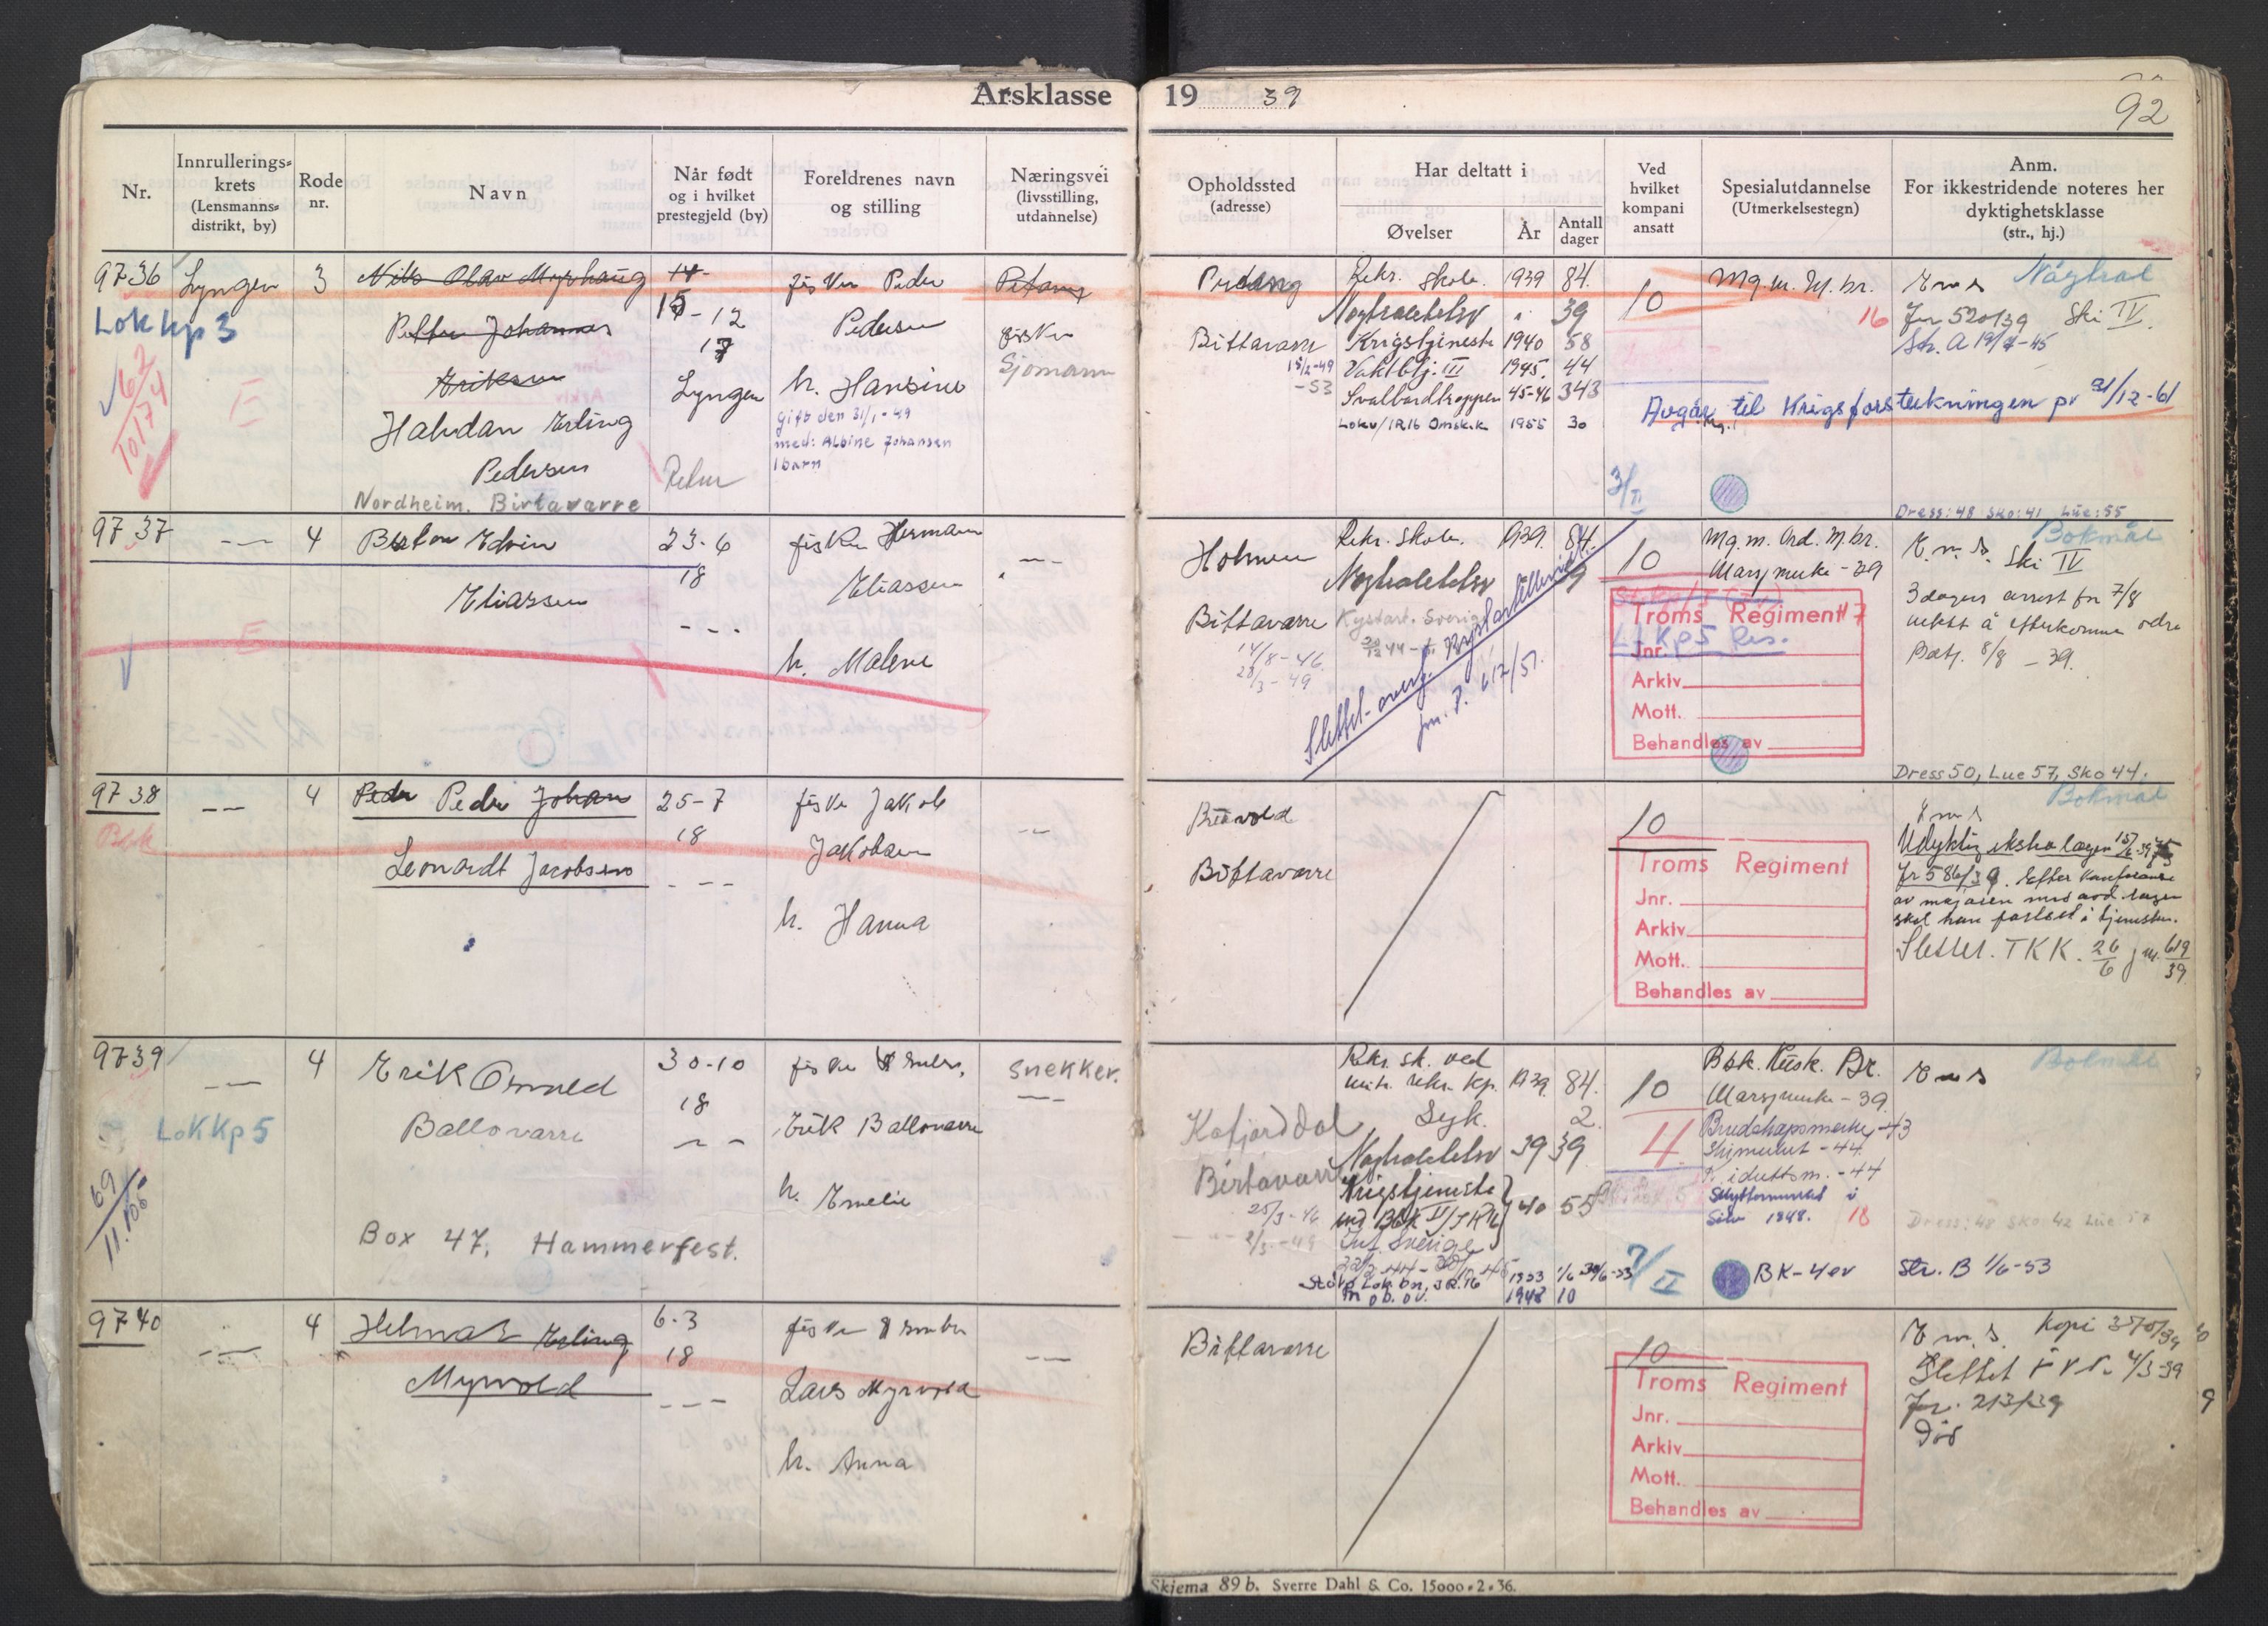 Årsklasse 1939
92
Nr.
Innrullerings-
krets
(Lensmanns-
distrikt, by)
Rode
nr.
Navn
Når født
og i hvilket
prestegjeld (by)
Foreldrenes navn
og stilling
Næringsvei
(livsstilling,
utdannelse)
Opholdssted
(adresse)
Har deltatt i
Øvelser
År
Antall
dager
Ved
hvilket
kompani
ansatt
Spesialutdannelse
(Utmerkelsestegn)
Anm.
For ikkestridende noteres her
dyktighetsklasse
(str., hj.)
9736 Lyngen 3
Lok kp 3
62
10174
E
Nils Olav Myrhaug
Johannes
Eriksen
Halvdan Erling
Pedersen
Nordheim. Birtavarre
15-12
17
Lyngen
fisker Peder
Pedersen
h. Hansine
Gift den 31/1-49
med: Albine Johansen
1 barn
fisker
Sjømann
Birtavarre
15/2-49
-53
Rekr. skole. 1939 84.
Nøytralitetsv " 39
Krigstjeneste 1940 58
Vaktblj. III 1945. 44
Svalbardtroppen 45-46 343
Lokv/IR16 Omsk.k 1955 30
10
3/II
16
E m s Nøytral
Jnr 520/39 Ski IV.
Str. A 19/7-45
Avgår til Krigsforsterkningen pr 31/12-61
Dress: 48 Sko: 41 Lue: 55
9737 --- 4
E
Edvin
Eliassen
23-6
18
---
fisker Herman
Eliassen
h. Malene
---
Holmen
Birtavarre
14/8-46
28/3-49
Rekr. skole. 1939. 84.
Nøytralitetsv 39
Kystart. Sverige
Slettet-overf. Kystartilleriet
jnr. P. 612/51.
10
Mg.m. Ord. M.br.
Marsjmerke-39
Troms Regiment
Jnr.
Arkiv
Mott.
Behandles av
Lok Kp 5 Res.
Bokmål
E. m. s. Ski IV
3 dagers arrest for 7/8
nektet å efterkomme ordre
Bat. 8/8 - 39.
Dress 50, Lue 57, Sko 44.
9738 --- 4
Bsk
Peder Peder Johan
Leonardt Jacobsen
25-7
18
---
fisker Jakob
Jakobsen
h. Hanna
---
Birtavarre
10
Troms Regiment
Jnr.
Arkiv
Mott.
Behandles av
Bokmål
E m s
Udyktig ekstra lægen
Jr 586/39. Efter konferanse
av majoren med avd. lægen
skal han fortsett i tjenesten.
Slettet. TKK. 26/6 jnr. 619/39
9739 --- 4
Lok Kp 5
69
11.106
Erik Osvald
Ballovarre
Box 47, Hammerfest.
30-10
18
---
Erik Ballovarre
h. Emelie
Snekker.
---
Kåfjorddal
Birtavarre
25/3-46
2/3-49
Rekr. sk. ved
mitr. rekr. kp. 1939. 84.
Syk. 2.
Nøytralitetsv 39 39
Krigstjeneste
ved Bsk II/IR16 40 55
Inf. Sverige
Lok. bn. IR.16 1953 1/6-30/6-53
1948 10
10
4
7/II
Bsk. Kusk. Br.
Marsjmerke-39.
Brudskapsmerke-43
Skimerket-44
idrettsm.-44
Skyttermerket i
Sølv 1948. 18
BK-4 ev
Bokmål
E m s
Dress: 48 Sko: 42 Lue 57
Str. B 1/6-53
9740 --- 4
Helmar Erling
Myrvold
6-3
18
---
Lars Myrvold
h. Anna
---
Birtavarre
10
Troms Regiment
Jnr.
Arkiv
Mott.
Behandles av
E m s. Kopi
Slettet 4/3-39
Jnr. 213/39
Død
Skjema 89 b. Sverre Dahl & Co. 15000-2-36.